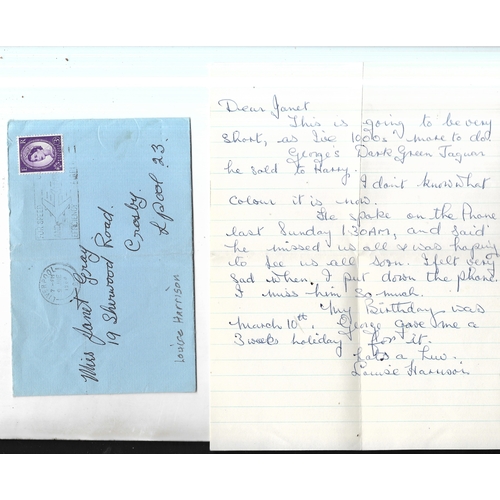 Miss Janet Gray
19 Sherwood Road.
Crosby
L pool 23.
Louise Harrison
Dear Janet
This is going to be very
short, as I've 1000s more to do.
George's Dark Green Jaguar
he sold to Harry.
I don't know what
colour it is now.
He spoke on the Phone
last Sunday 1.30AM, and said
he missed us all & was hoping
to see us all soon. I felt very
sad when I put down the phone.
I miss him so much.
My Birthday was
March 10th. George gave me a
3 weeks holiday for it.
Lots a Luv.
Louise Harrison